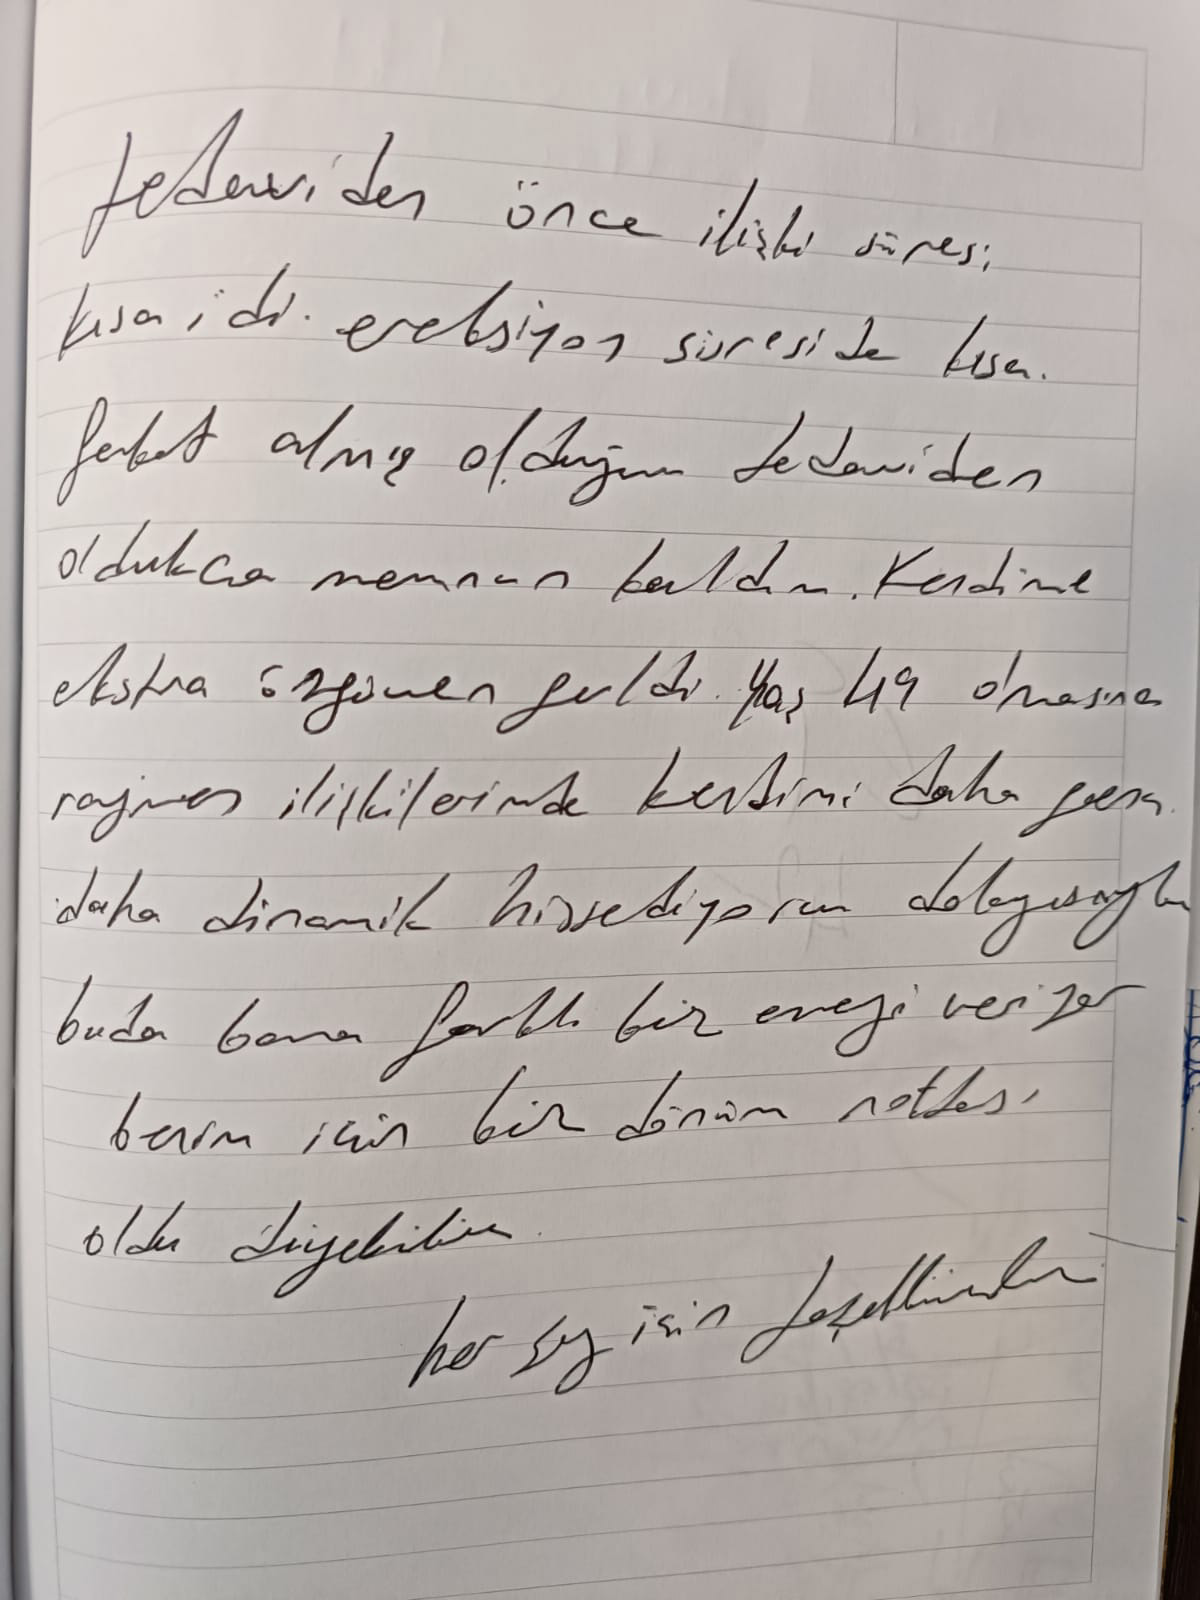 tedaviden önce ilişki süresi
kısa idi. ereksiyon süreside kısa.
fakat almış olduğum tedaviden
oldukca memnun kaldım. Kendime
ekstra özgüven geldi. Yaş 49 olmasına
rağmen ilişkilerimde kendimi daha genç
daha dinamik hissediyorum dolayısıyla
buda bana farklı bir enerji veriyor
benim için bir dönüm noktası
oldu diyebilirim.
her şey için teşekkürler